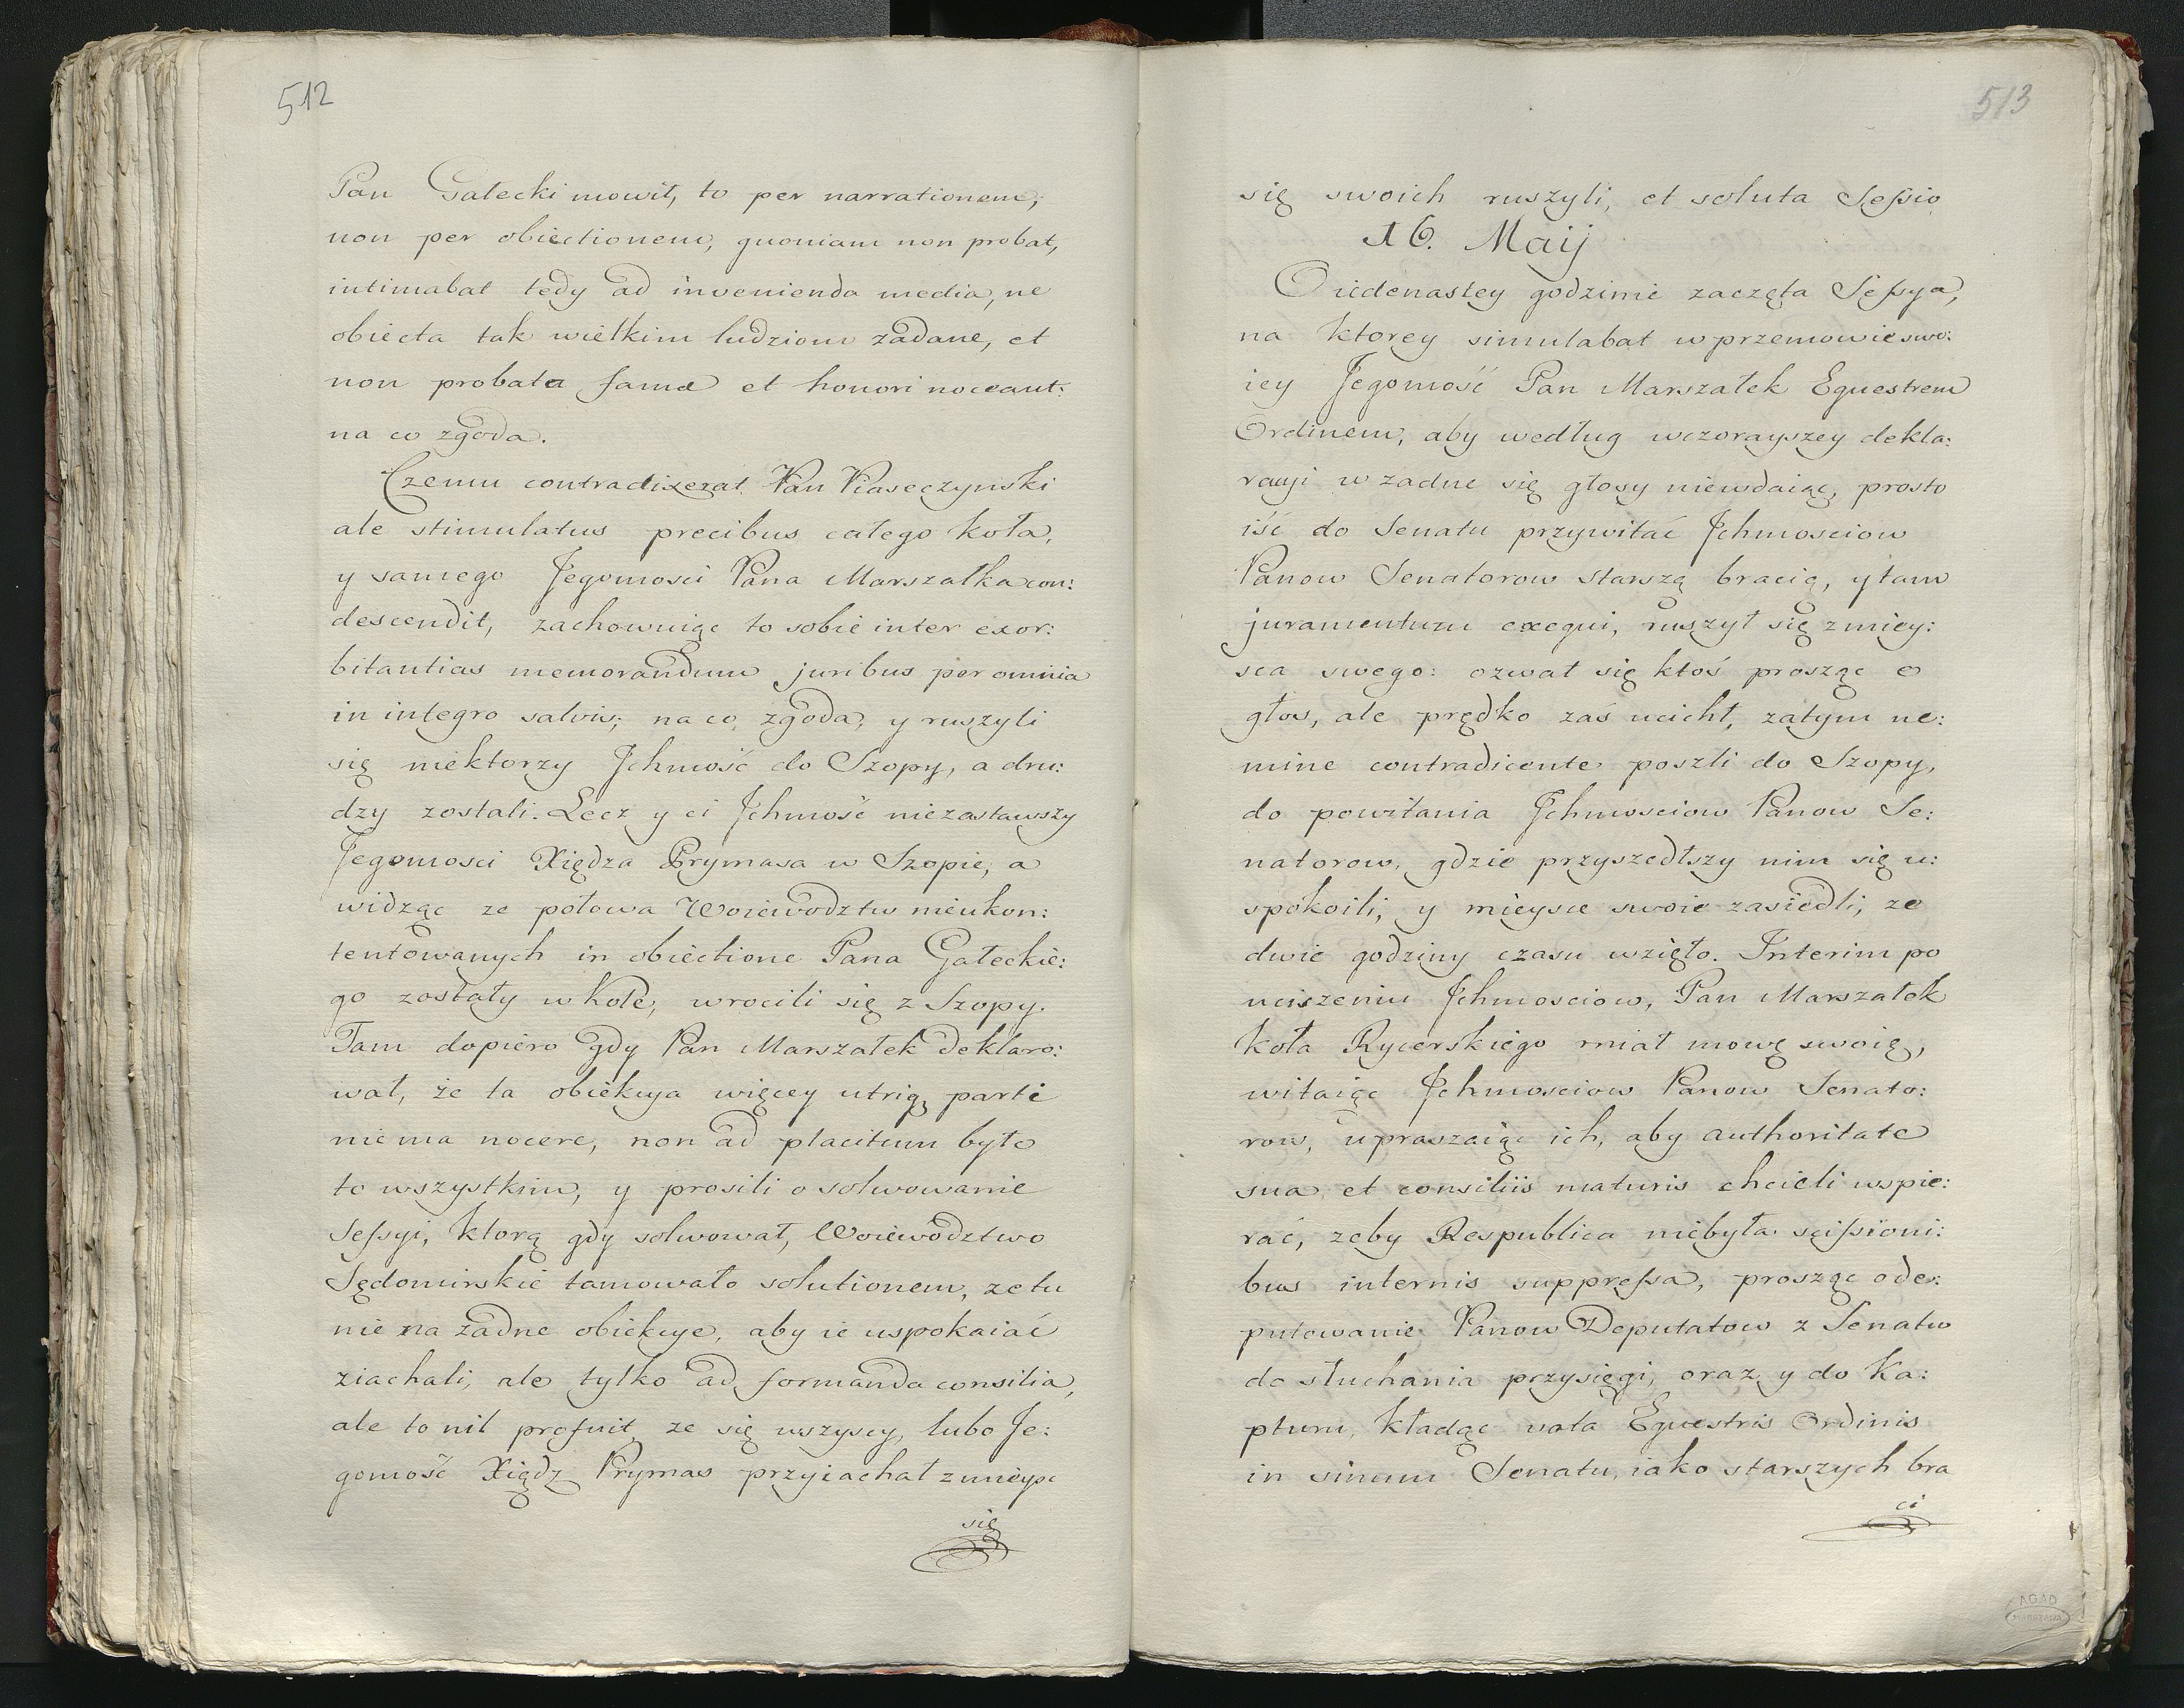 512
Pan Gałecki mowił, to per narrationem,
non per obiectionem, quoniam non probat,
intimabat tedy ad invenienda media, ne
obiecta tak wielkim ludziom zadane, et
non probata famæ et honori noceant:
na co zgoda.
Czemu contradixerat Pan Piaseczynski
ale stimulatus precibus całego koła,
y samego Jegomosci Pana Marszałka con:
descendit, zachowuiąc to sobie inter exor:
bitantias memorandum juribus per omnia
in integro salvis; na co zgoda; y ruszyli
się niektorzy Jchmość do Szopy, a dru:
dzy zostali. Lecz y ci Jchmość niezastawszy
Jegomosci Xiędza Prymasa w Szopie, a
widząc ze połowa Woiewodztw nieukon:
tentowanych in obiectione Pana Gałeckie:
go zostały w Kole, wrocili się z Szopy.
Tam dopiero gdy Pan Marszałek deklaro:
wał, że ta obiekcya więcey utriq parti
niema nocere, non ad placitum było
to wszystkim, y prosili o solwowanie
Sessyi, ktorą gdy solwował, Woiewodztwo
Sędomirskie tamowało solutionem, ze tu
nie na żadne obiekcye, aby ie uspokaiać
ziachali, ale tylko ad formanda consilia,
ale to nil profuit, ze się wszyscy, lubo Je:
gomość Xiądz Prymas przyiachał z mieysc
się
513
się swoich ruszyli, et soluta Sessio
16. Maij
O iedenastey godzinie zaczęta Sessya,
na ktorey simulabat w przemowie swo:
iey Jegomość Pan Marszałek Equestrem
Ordinem, aby według wczorayszey dekla:
racyi w zadne się głosy niewdaiąc, prosto
iść do Senatu przywitać Jchmosciow
Panow Senatorow starszą bracią, y tam
juramentum exequi, ruszył się z miey:
sca swego: ozwał się ktoś prosząc o
głos, ale prędko zaś ucichł, zatym ne:
mine contradicente poszli do Szopy,
do powitania Jchmosciow Panow Se:
natorow, gdzie przyszedłszy nim się u:
spokoili, y mieysce swoie zasiedli, ze
dwie godziny czasu wzięło. Interim po
uciszeniu Jchmosciow, Pan Marszałek
Koła Rycerskiego miał mowę swoię,
witaiąc Jchmosciow Panow Senato:
row, upraszaiąc ich, aby authoritate
sua, et consiliis maturis chcieli wspie:
rać, zeby Respublica niebyła scissioni:
bus internis suppressa, prosząc o de:
putowanie Panow Deputatow z Senatu
do słuchania przysięgi, oraz y do Ka:
pturu, kładąc vota Equestris Ordinis
in sinum Senatu, iako starszych bra
ci
AGAD
WARSZAWA